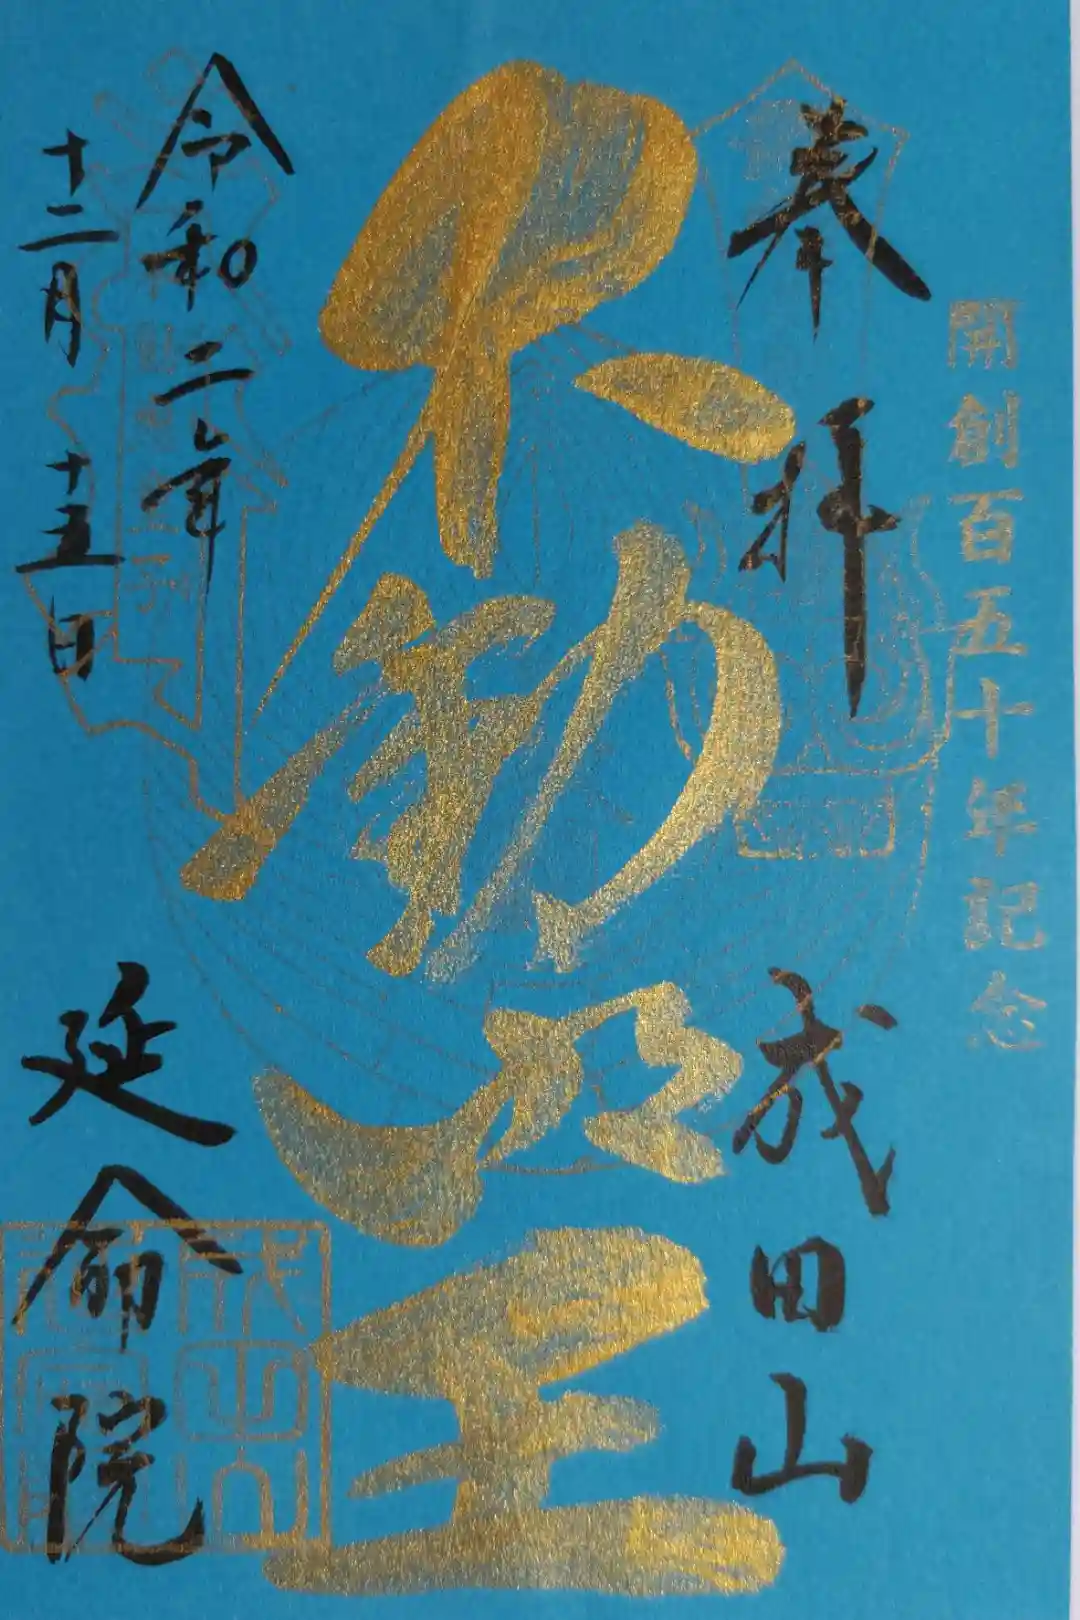 開創百五十年記念
奉拝 成田山
不動明王
令和二年
十二月十五日
延命院